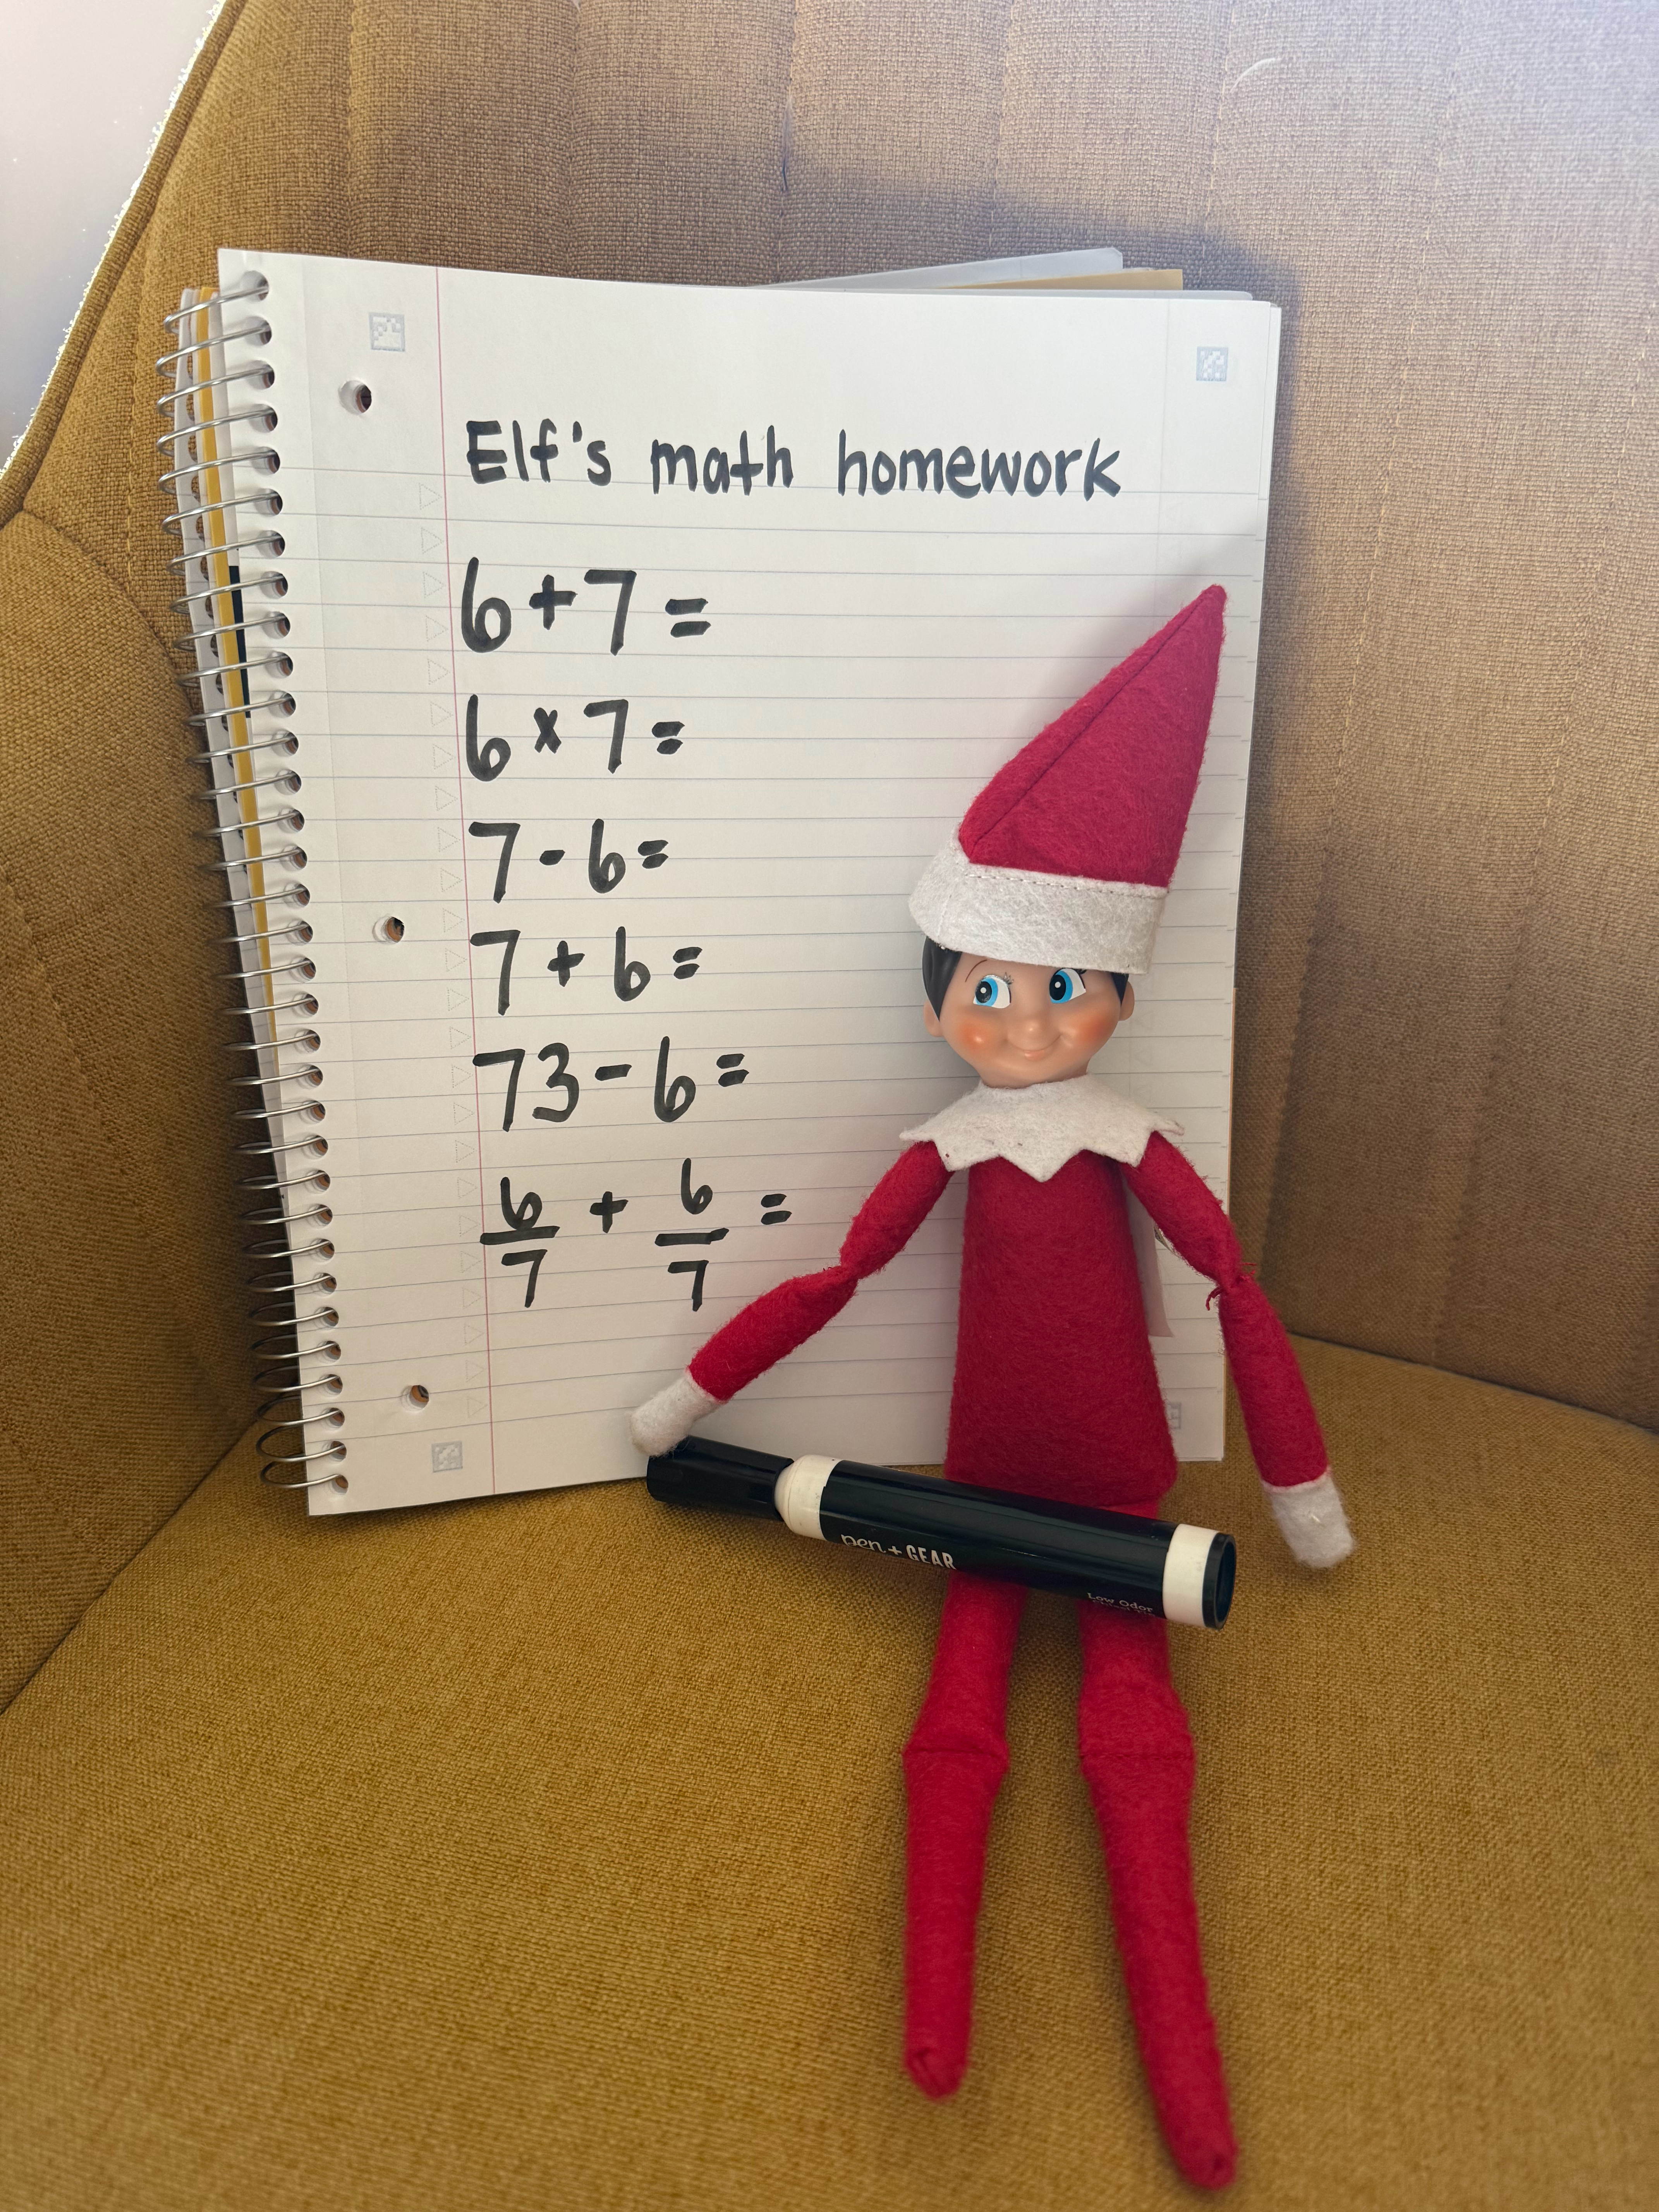 Elf's math homework
6+7=
6x7=
7-6=
7+6=
73-6=
6/7 + 6/7 =
pen+GEAR
Low Odor